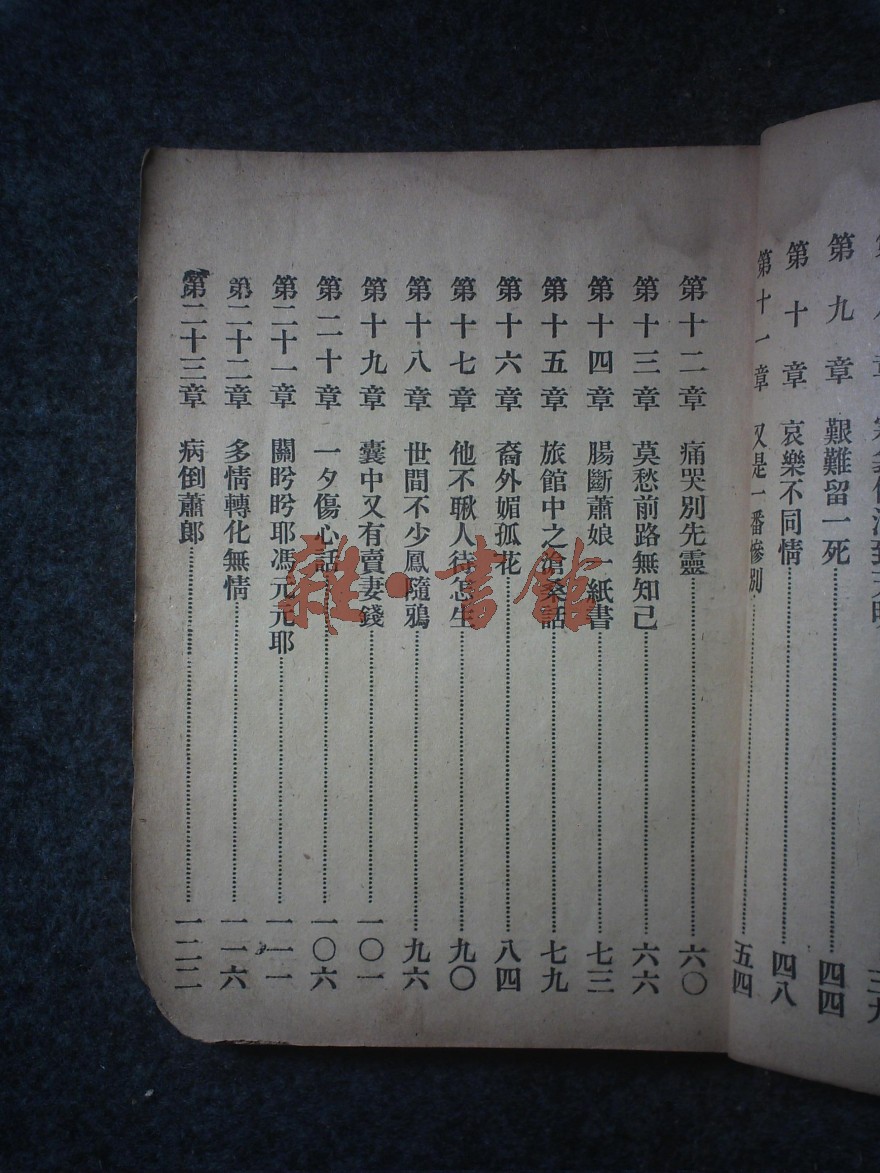 第九章 艱難留一死 四四
第十章 哀樂不同情 四八
第十一章 又是一番慘別 五四
第十二章 痛哭別先靈 六〇
第十三章 莫愁前路無知己 六六
第十四章 腸斷蕭娘一紙書 七三
第十五章 旅館中之滄桑話 七九
第十六章 裔外媚孤花 八四
第十七章 他不瞅人待怎生 九〇
第十八章 世間不少鳳隨鴉 九六
第十九章 囊中又有賣妻錢 一〇一
第二十章 一夕傷心話 一〇六
第二十一章 關盻盻耶馮元元耶 一一一
第二十二章 多情轉化無情 一一六
第二十三章 病倒蕭郎 一二二
雜·書館